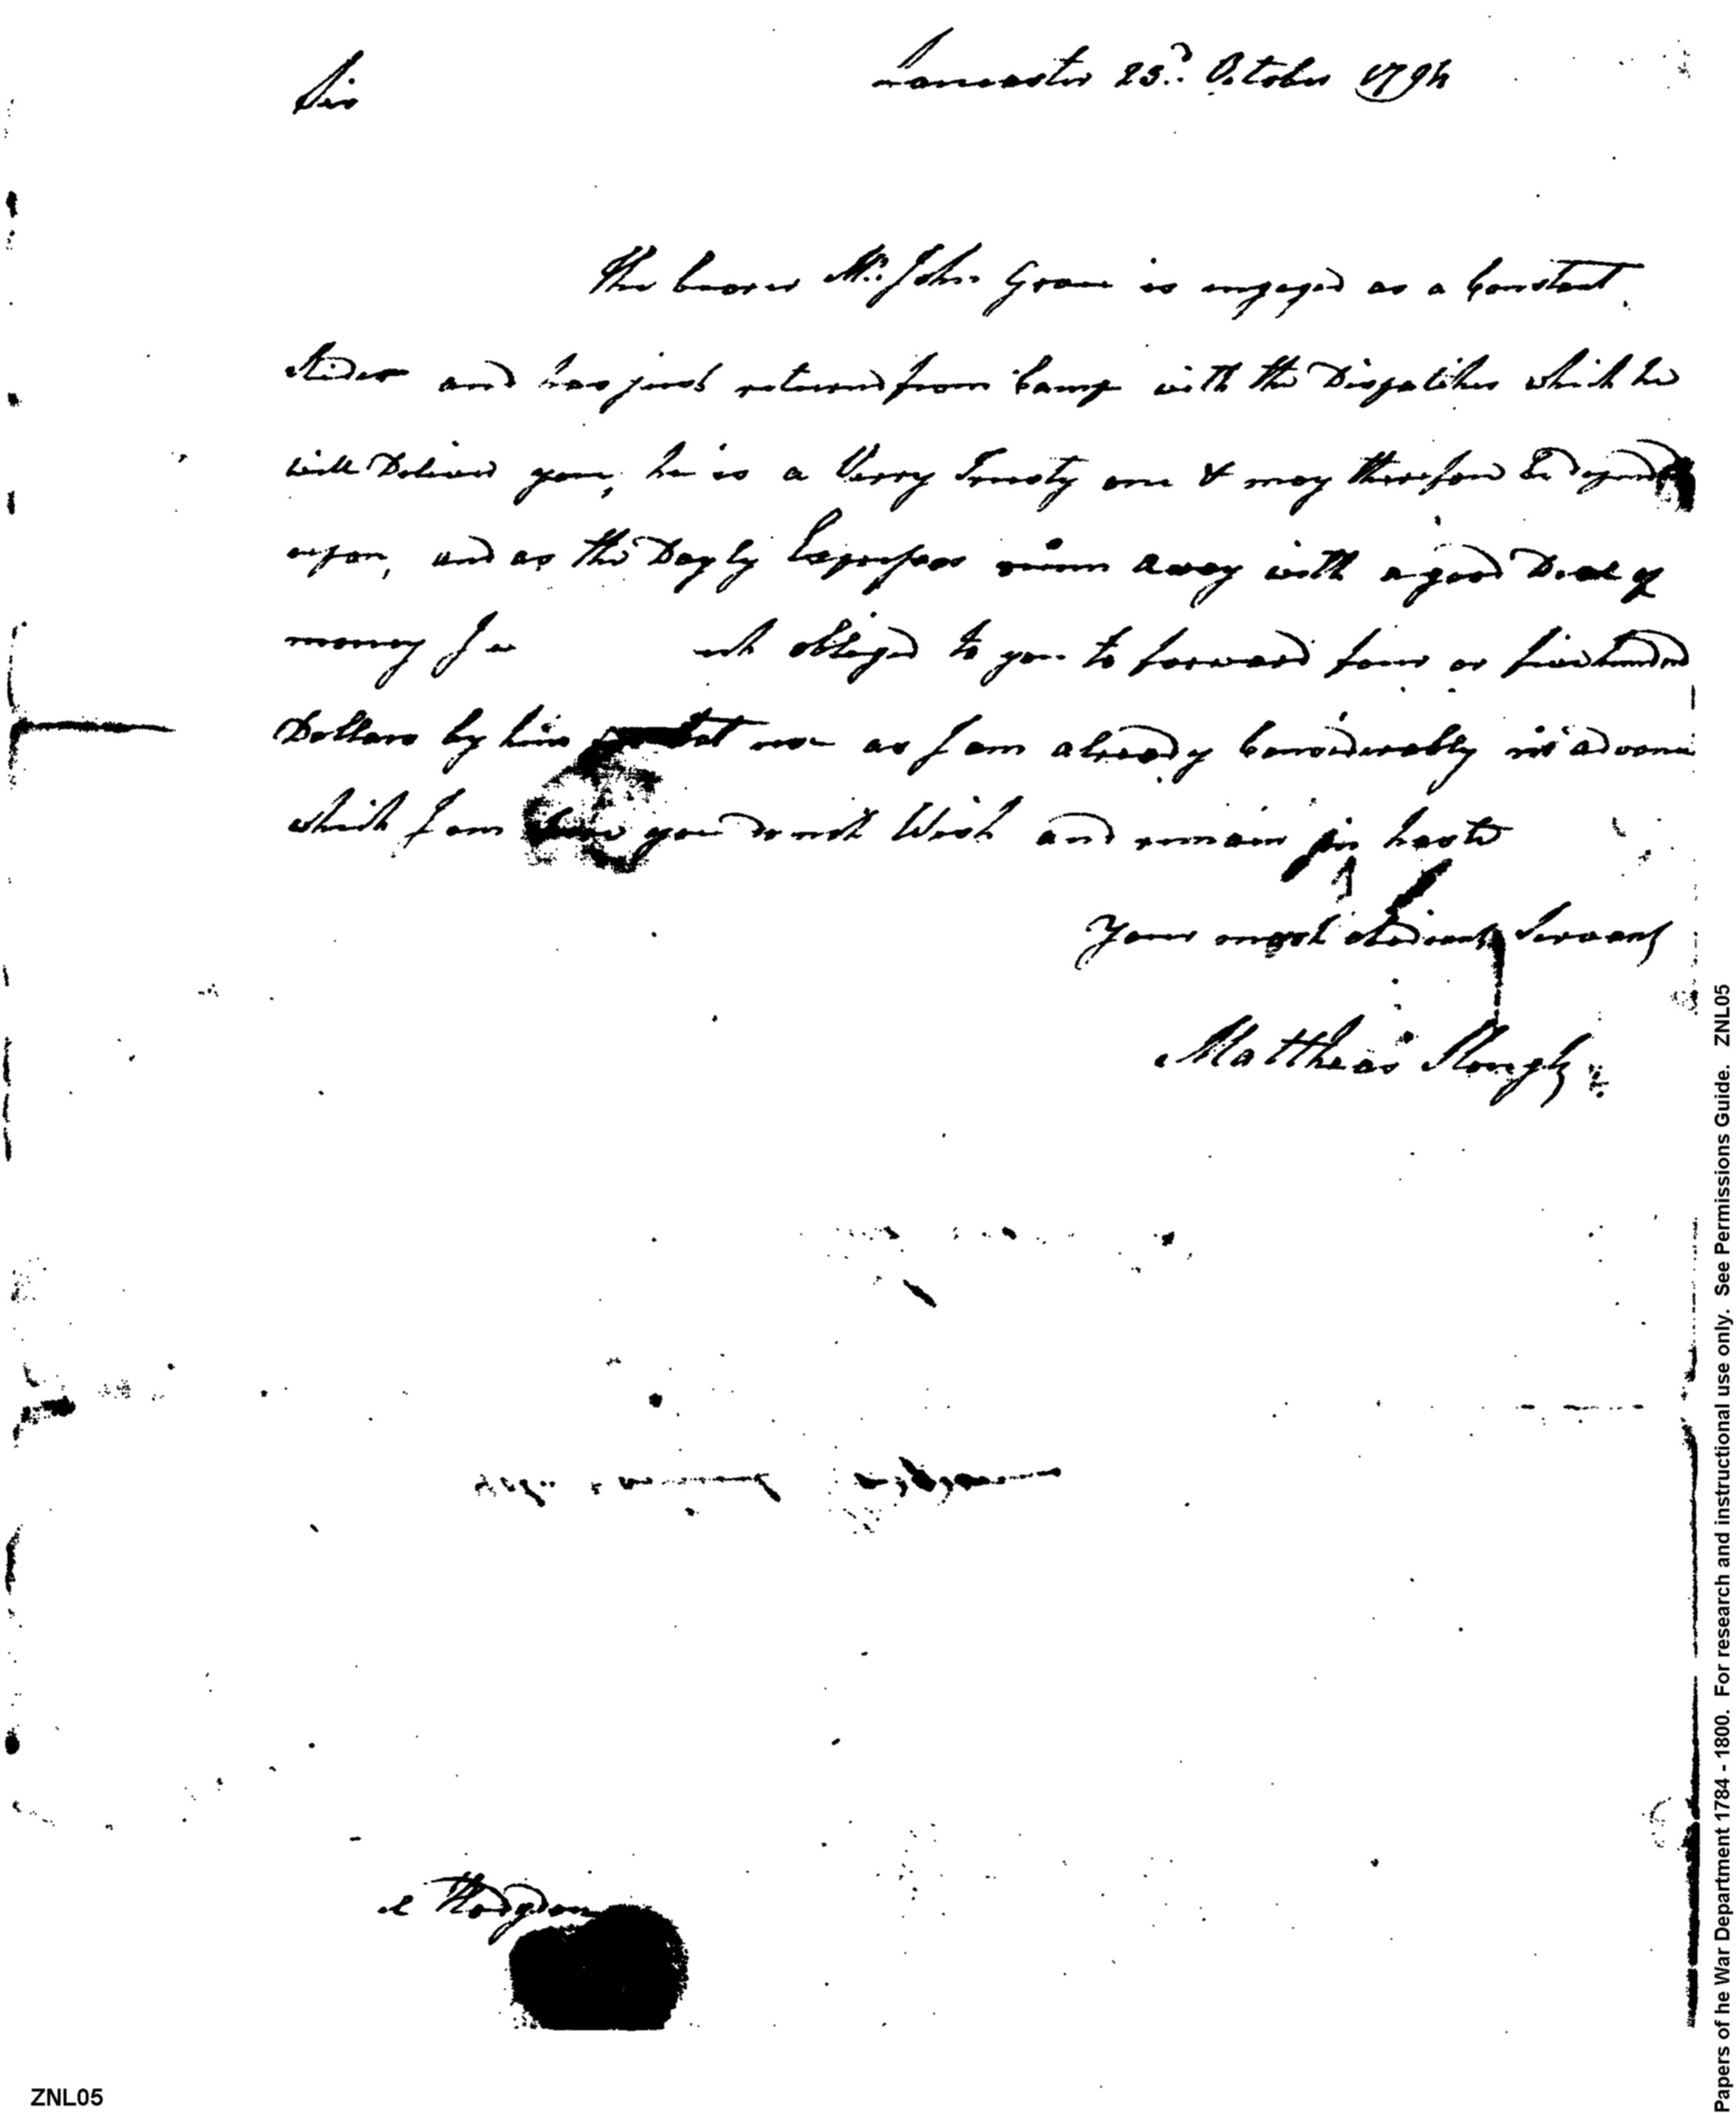 Sir Lancaster 23.d October 1794
The bearer Mr. John Grove is engaged as a Constant
Rider and has just returned from Camp with the Dispatches which he
will Deliver you, he is a Verry Trusty one & may therefore be depend
upon, and as the Dayly Expresses runn away with a good Deal of
money I obliged to you to forward four or five hundred
Dollars by him now as I am already Considerably in advance
which I am you do not Wish and remain in haste
Your most obedient Servant
Matthias Slough
Hodgdon
ZNL05
Papers of he War Department 1784 - 1800. For research and instructional use only. See Permissions Guide. ZNL05